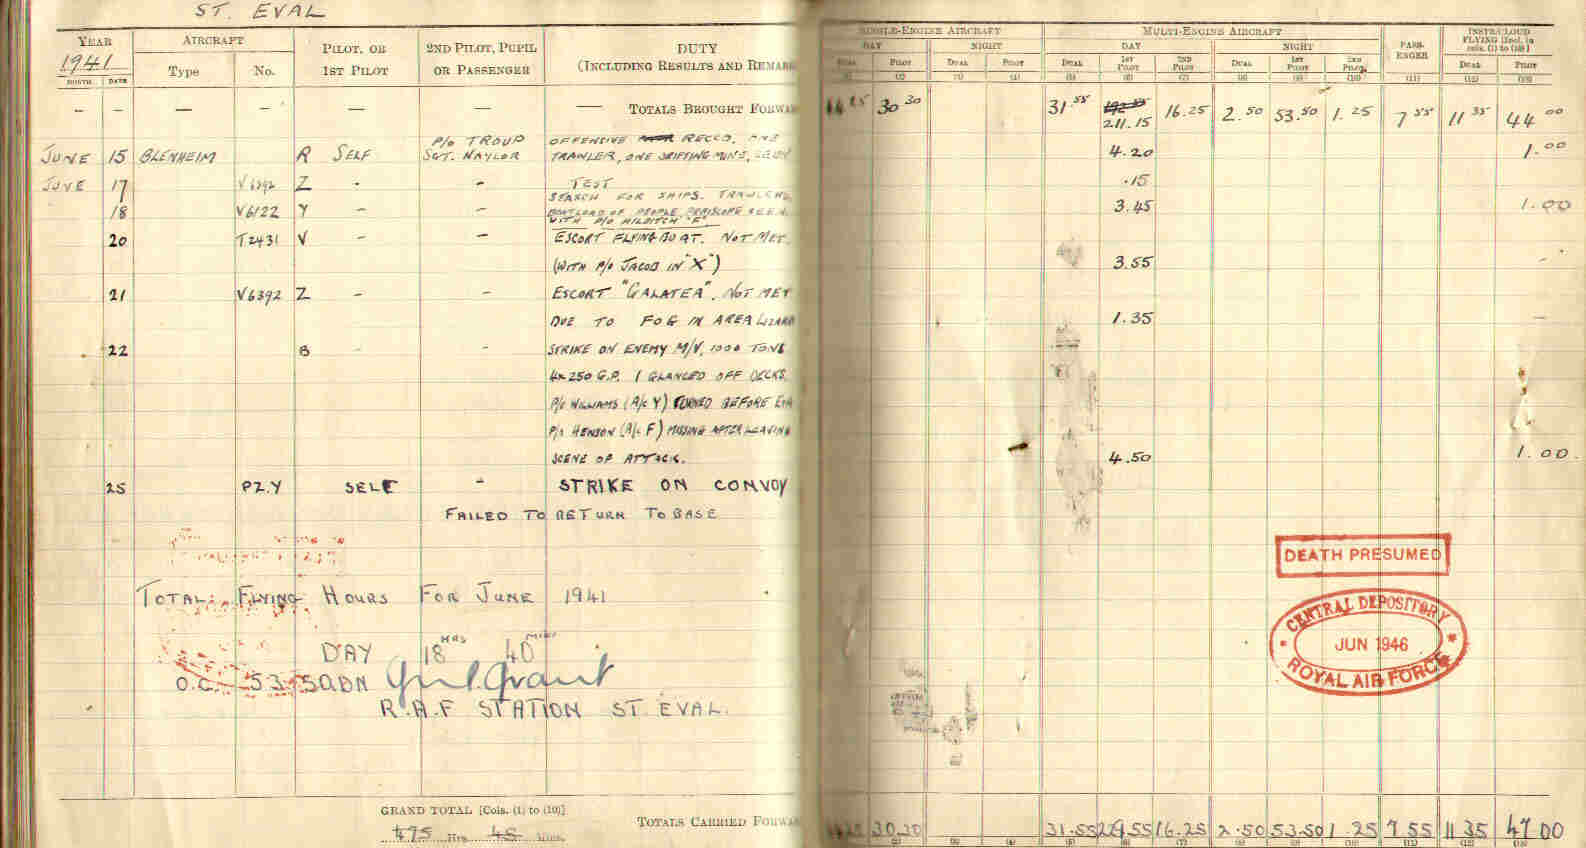 ST. EVAL
YEAR AIRCRAFT PILOT, OR 2ND PILOT, PUPIL DUTY
1941 Type No. 1ST PILOT OR PASSENGER (INCLUDING RESULTS AND REMAR
MONTH DATE
— — — — — — — TOTALS BROUGHT FORWA
P/O TROUP OFFENSIVE RECCO. ONE
JUNE 15 BLENHEIM R SELF SGT. NAYLOR TRAWLER, ONE DRIFTING MINE,
JUNE 17 V6392 Z - - TEST
SEARCH FOR SHIPS. TRAWLERS,
18 V6122 Y - - BOATLOAD OF PEOPLE, PERISCOPE SEEN.
WITH P/O HILDITCH "F"
20 T.2431 V - - ESCORT FLYING BOAT. NOT MET.
(WITH P/O JACOB IN "X")
21 V6392 Z - - ESCORT "GALATEA". NOT MET
DUE TO FOG IN AREA LIZARD
22 B - - STRIKE ON ENEMY M/V, 1000 TONS
4x250 G.P. 1 GLANCED OFF DECKS.
P/O WILLIAMS (A/C Y) TURNED BEFORE
P/O HENSON (A/C F) MISSING AFTER LEAVING
SCENE OF ATTACK.
25 PZ.Y SELF - STRIKE ON CONVOY
FAILED TO RETURN TO BASE
TOTAL FLYING HOURS FOR JUNE 1941
DAY 18 HRS 40 MINS
O.C. 53 SQDN Grant
R.A.F STATION ST. EVAL.
GRAND TOTAL [Cols. (1) to (10)]
475 Hrs. 45 Mins.
TOTALS CARRIED FORWA
SINGLE-ENGINE AIRCRAFT MULTI-ENGINE AIRCRAFT PASS-ENGER INSTR/CLOUD FLYING [Incl. in cols. (1) to (10)]
DAY NIGHT DAY NIGHT
DUAL PILOT DUAL PILOT DUAL 1ST PILOT 2ND PILOT DUAL 1ST PILOT 2ND PILOT DUAL PILOT
(1) (2) (3) (4) (5) (6) (7) (8) (9) (10) (11) (12) (13)
30 30 31 55 211.15 16.25 2.50 53.50 1.25 7 55 11 35 44 00
4.20 1.00
.15
3.45 1.00
3.55 -
1.35 -
4.50 1.00
DEATH PRESUMED
CENTRAL DEPOSITORY
JUN 1946
ROYAL AIR FORCE
30.30 31.55 229.55 16.25 2.50 53.50 1.25 7 55 11 35 47 00
(2) (3) (4) (5) (6) (7) (8) (9) (10) (11) (12) (13)